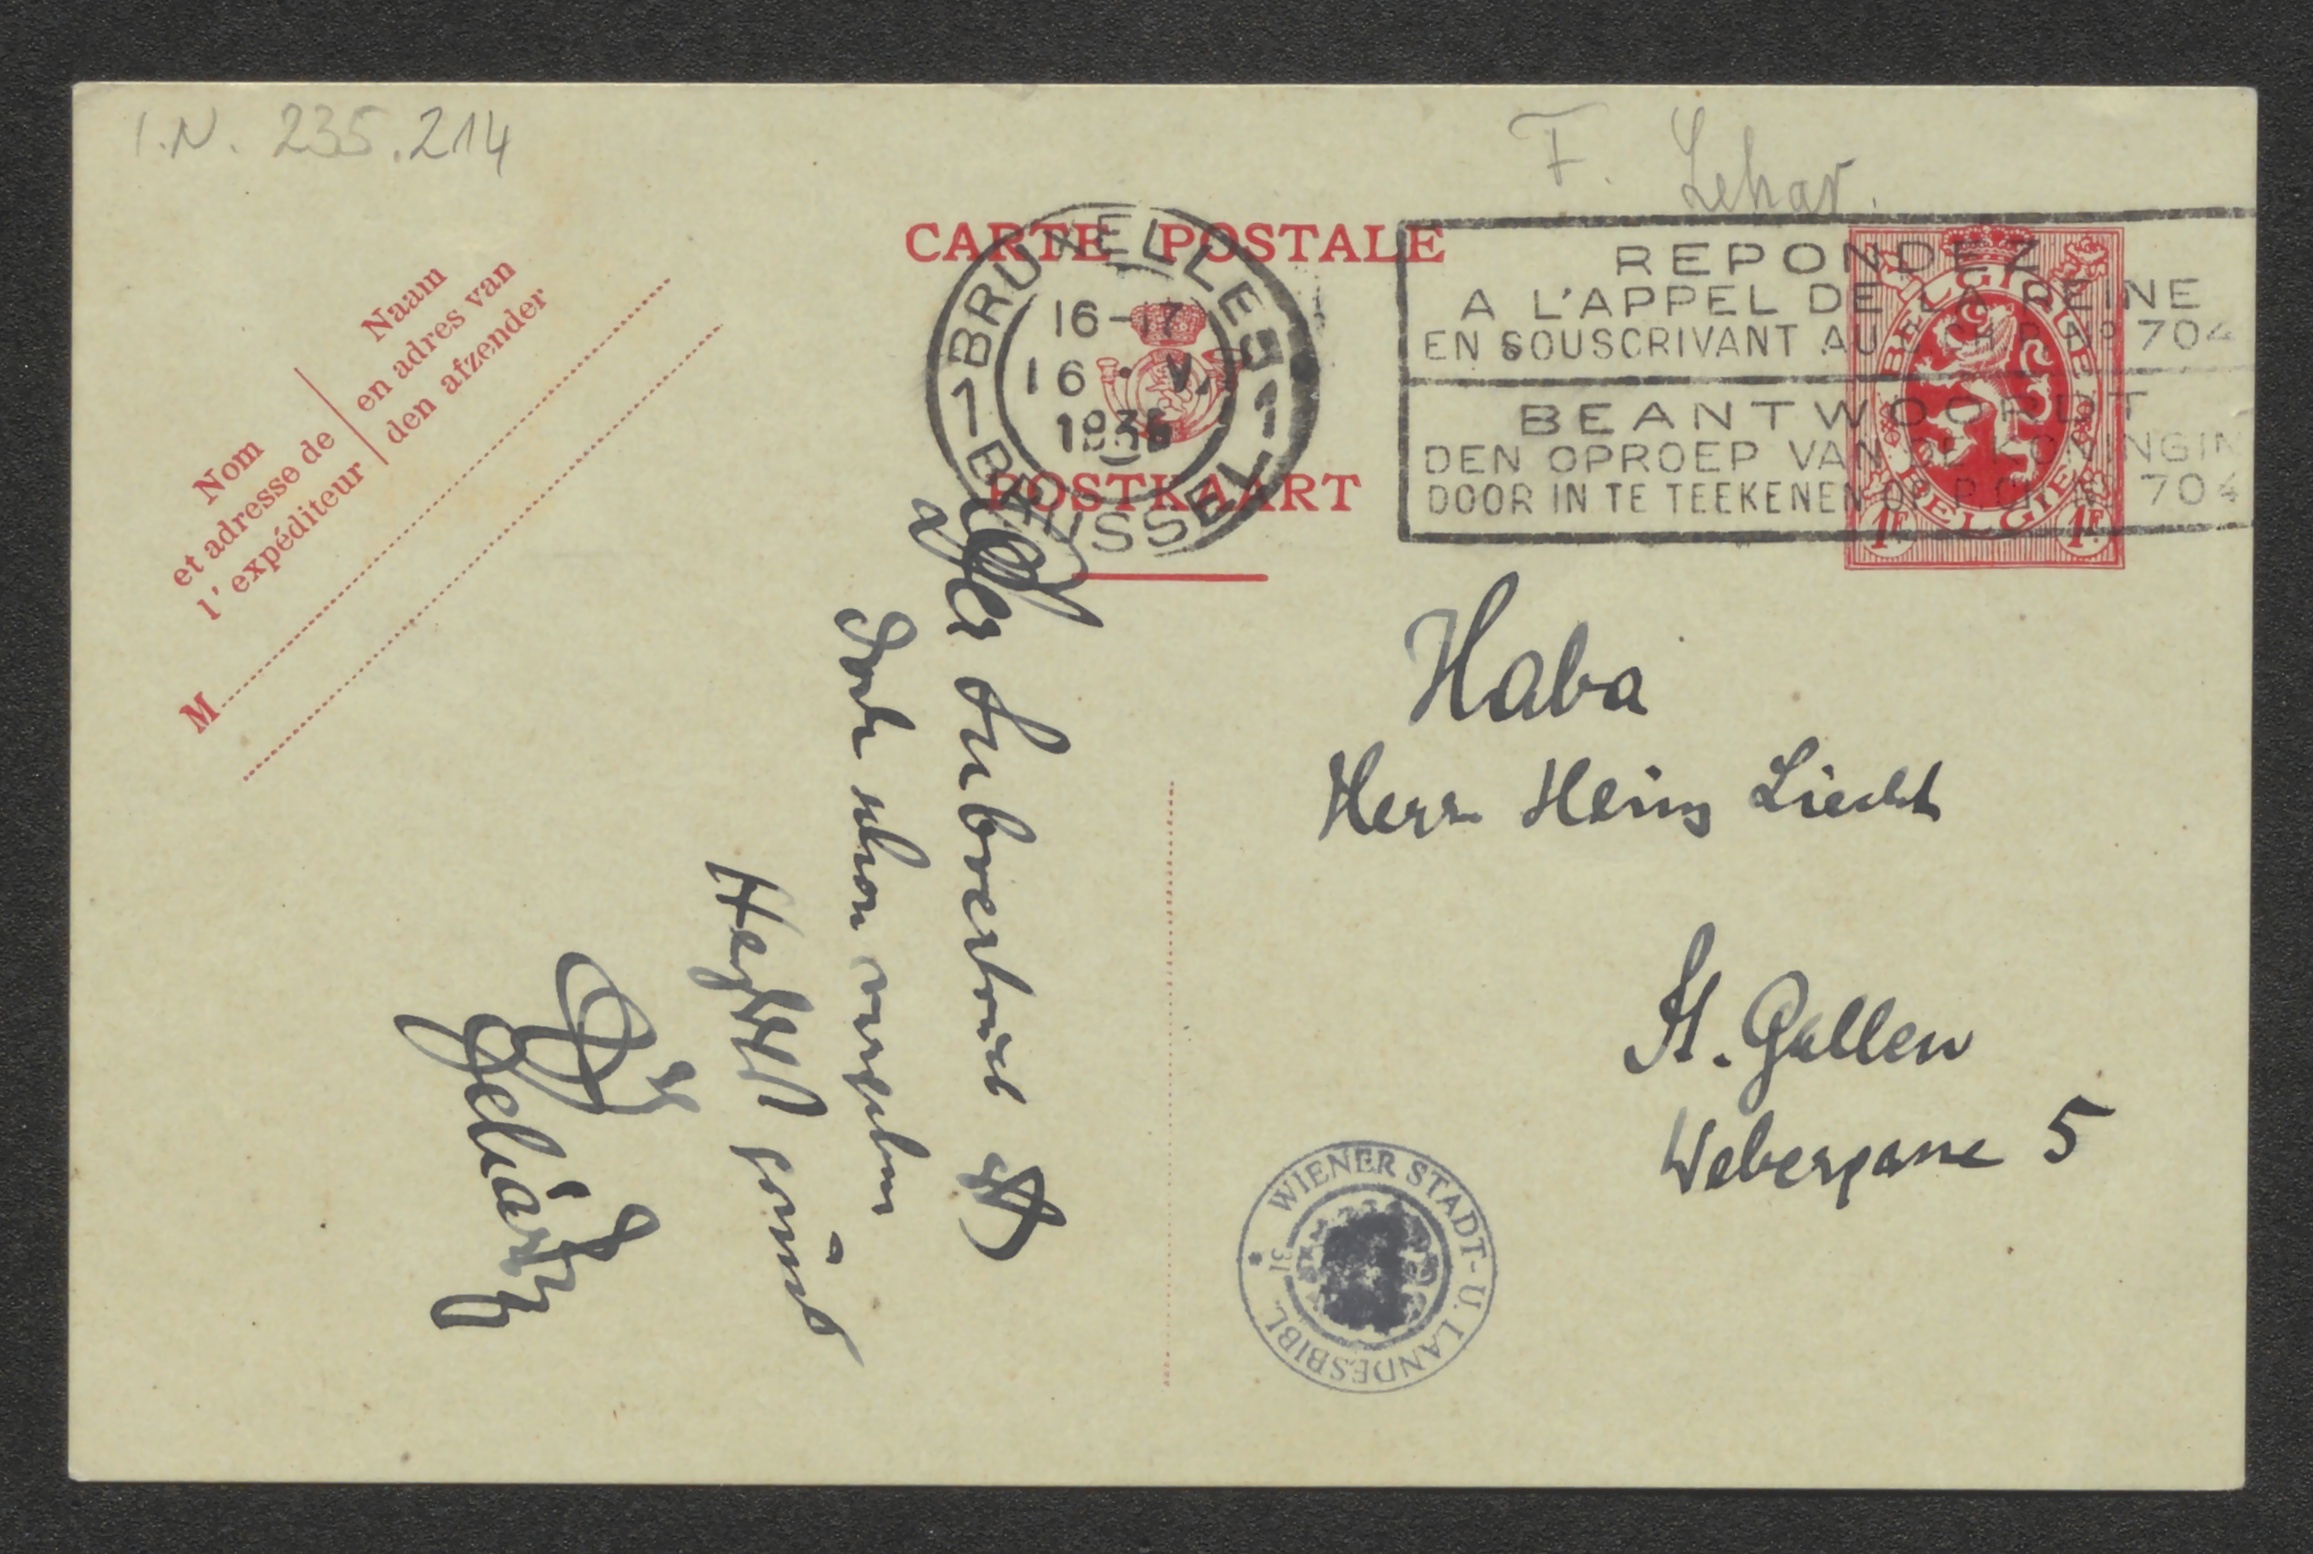 I.N. 235.214
F. Lehar.
CARTE POSTALE
POSTKAART
BRUXELLES
1 1
16-17
16 · V.
BRUSSEL
REPONDEZ
A L'APPEL DE LA REINE
EN SOUSCRIVANT AU C.CH.P. No 704
BEANTWOORDT
DEN OPROEP VAN DE KONINGIN
DOOR IN TE TEEKENEN OP P.CH. No 704
BELGIQUE
BELGIË
1F 1F
Nom
et adresse de
l'expéditeur
Naam
en adres van
den afzender
M
Haba
Herr Heinz Liecht
St. Gallen
Webergasse 5
Der
doch schon
Herzlichst
Lehár
WIENER STADT- U. LANDESBIBL.